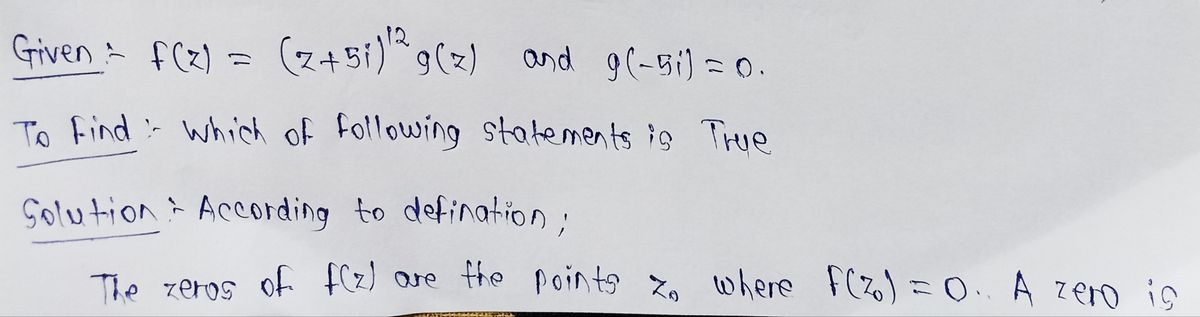 Given :- f(z) = (z+5i)¹² g(z) and g(-5i) = 0.
To find :- which of following statements is True
Solution :- According to defination ;
The zeros of f(z) are the points z₀ where f(z₀) = 0.. A zero is